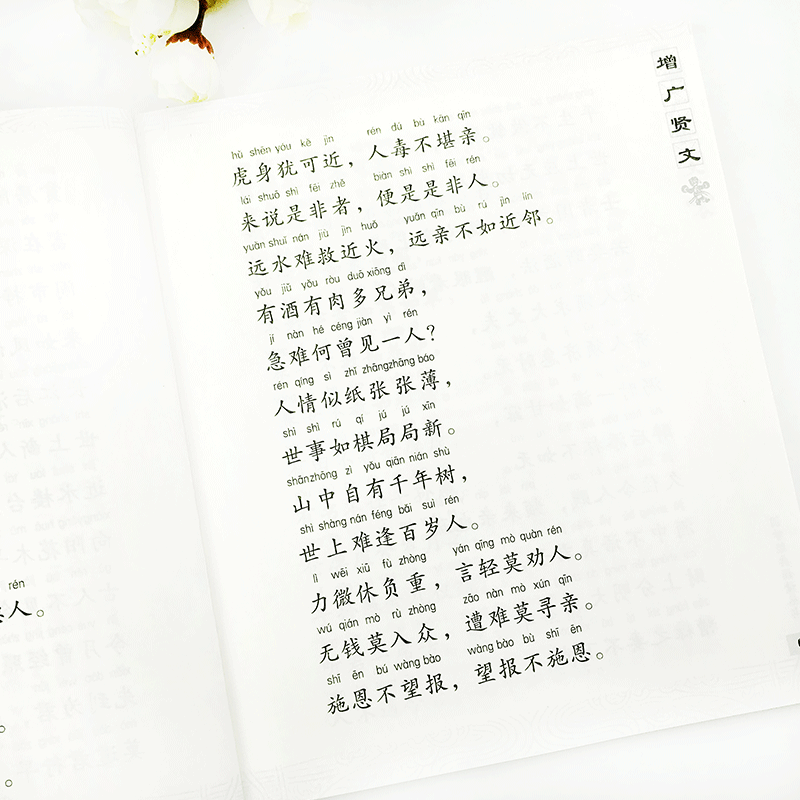 增广贤文
hǔ shēn yóu kě jìn rén dú bù kān qīn
虎身犹可近，人毒不堪亲。
lái shuō shì fēi zhě biàn shì shì fēi rén
来说是非者，便是是非人。
yuǎn shuǐ nán jiù jìn huǒ yuǎn qīn bù rú jìn lín
远水难救近火，远亲不如近邻。
yǒu jiǔ yǒu ròu duō xiōng dì
有酒有肉多兄弟，
jí nàn hé céng jiàn yì rén
急难何曾见一人？
rén qíng sì zhǐ zhāng zhāng báo
人情似纸张张薄，
shì shì rú qí jú jú xīn
世事如棋局局新。
shān zhōng zì yǒu qiān nián shù
山中自有千年树，
shì shàng nán féng bǎi suì rén
世上难逢百岁人。
lì wēi xiū fù zhòng yán qīng mò quàn rén
力微休负重，言轻莫劝人。
wú qián mò rù zhòng zāo nàn mò xún qīn
无钱莫入众，遭难莫寻亲。
shī ēn bú wàng bào wàng bào bù shī ēn
施恩不望报，望报不施恩。
rén
人。